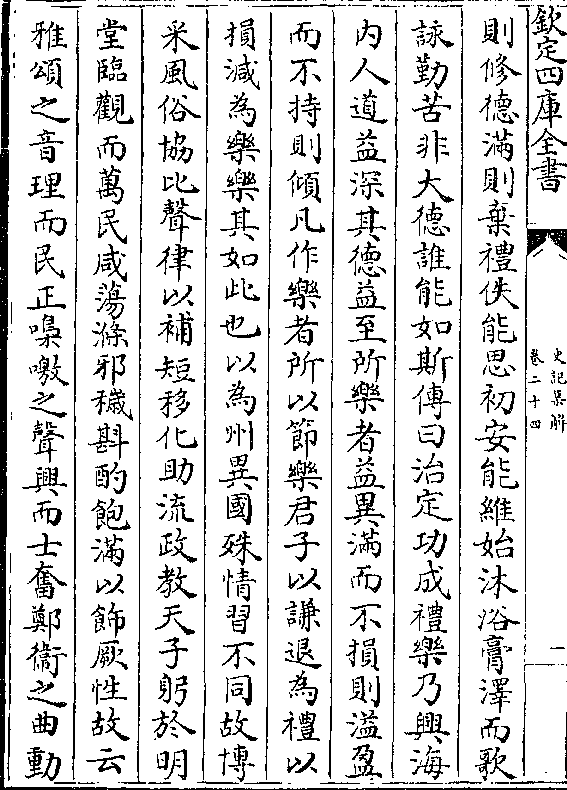 欽定四庫全書
史記集解
卷二十四
一
則修德滿則棄禮佚能思初安能維始沐浴膏澤而歌
詠勤苦非大德誰能如斯傳曰治定功成禮樂乃興海
内人道益深其德益至所樂者益異滿而不損則溢盈
而不持則傾凡作樂者所以節樂君子以謙退為禮以
損減為樂樂其如此也以為州異國殊情習不同故博
采風俗協比聲律以補短移化助流政教天子躬於明
堂臨觀而萬民咸蕩滌邪穢斟酌飽滿以飾厥性故云
雅頌之音理而民正嘄噭之聲興而士奮鄭衞之曲動